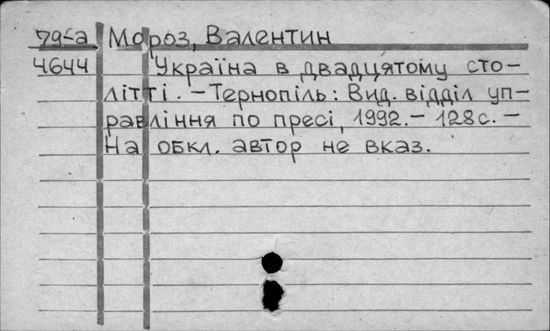 79-а Мороз, Валентин
4644 Україна в двадцятому сто-
літті. – Тернопіль: Вид. відділ уп-
равління по пресі, 1992. – 128 с. –
На обкл. автор не вказ.